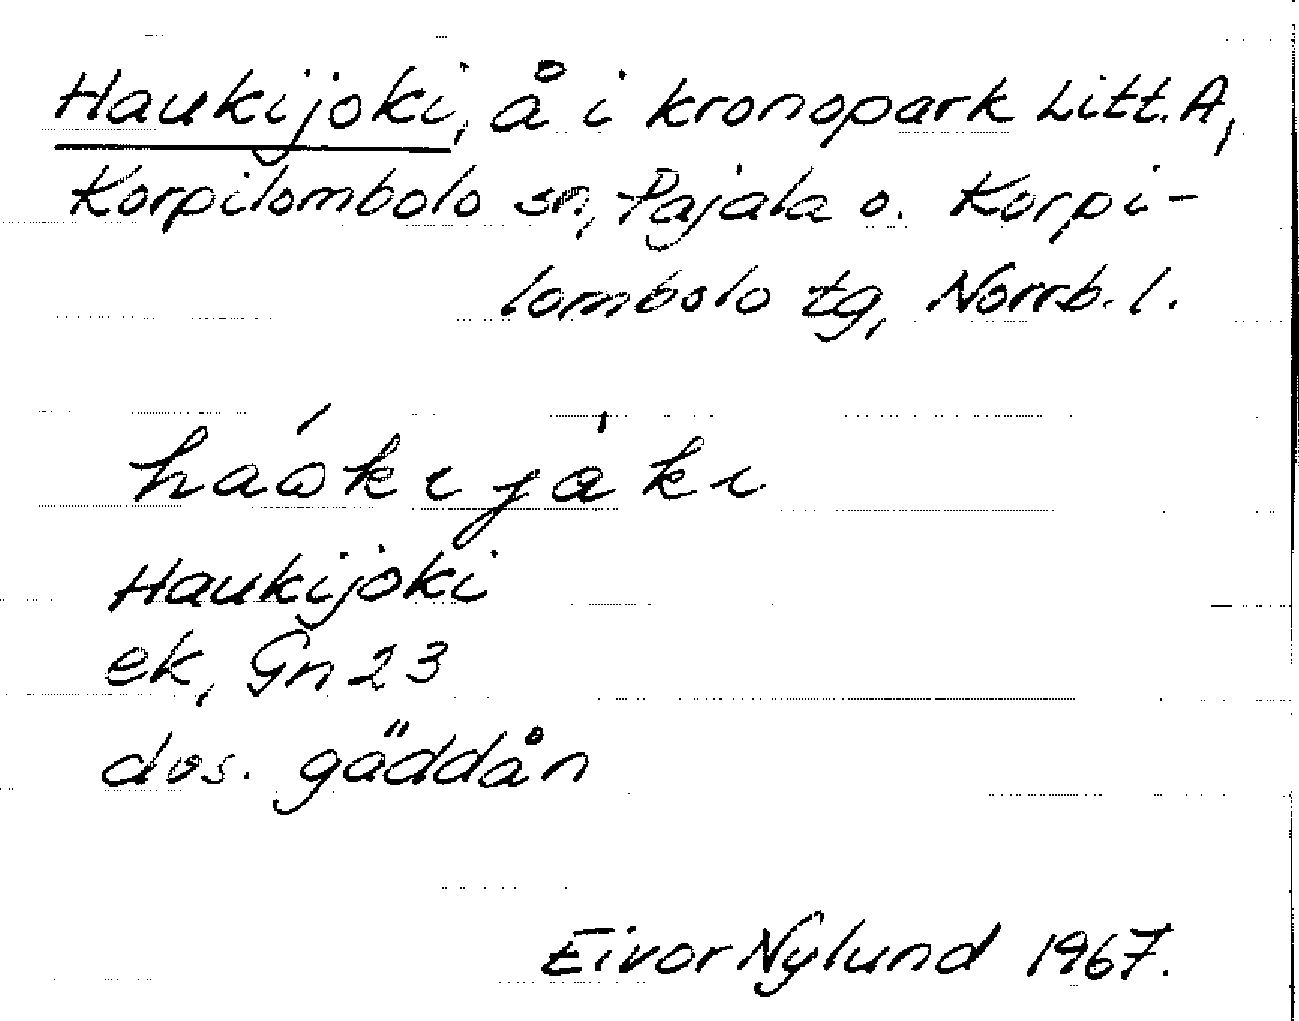 Haukijoki, å i kronopark Litt. A,
Korpilombolo sn, Pajala o. Korpi-
lombolo tg, Norrb. l.
Haukijoki
ek, Gn 23
dvs. gäddån
Eivor Nylund 1967.